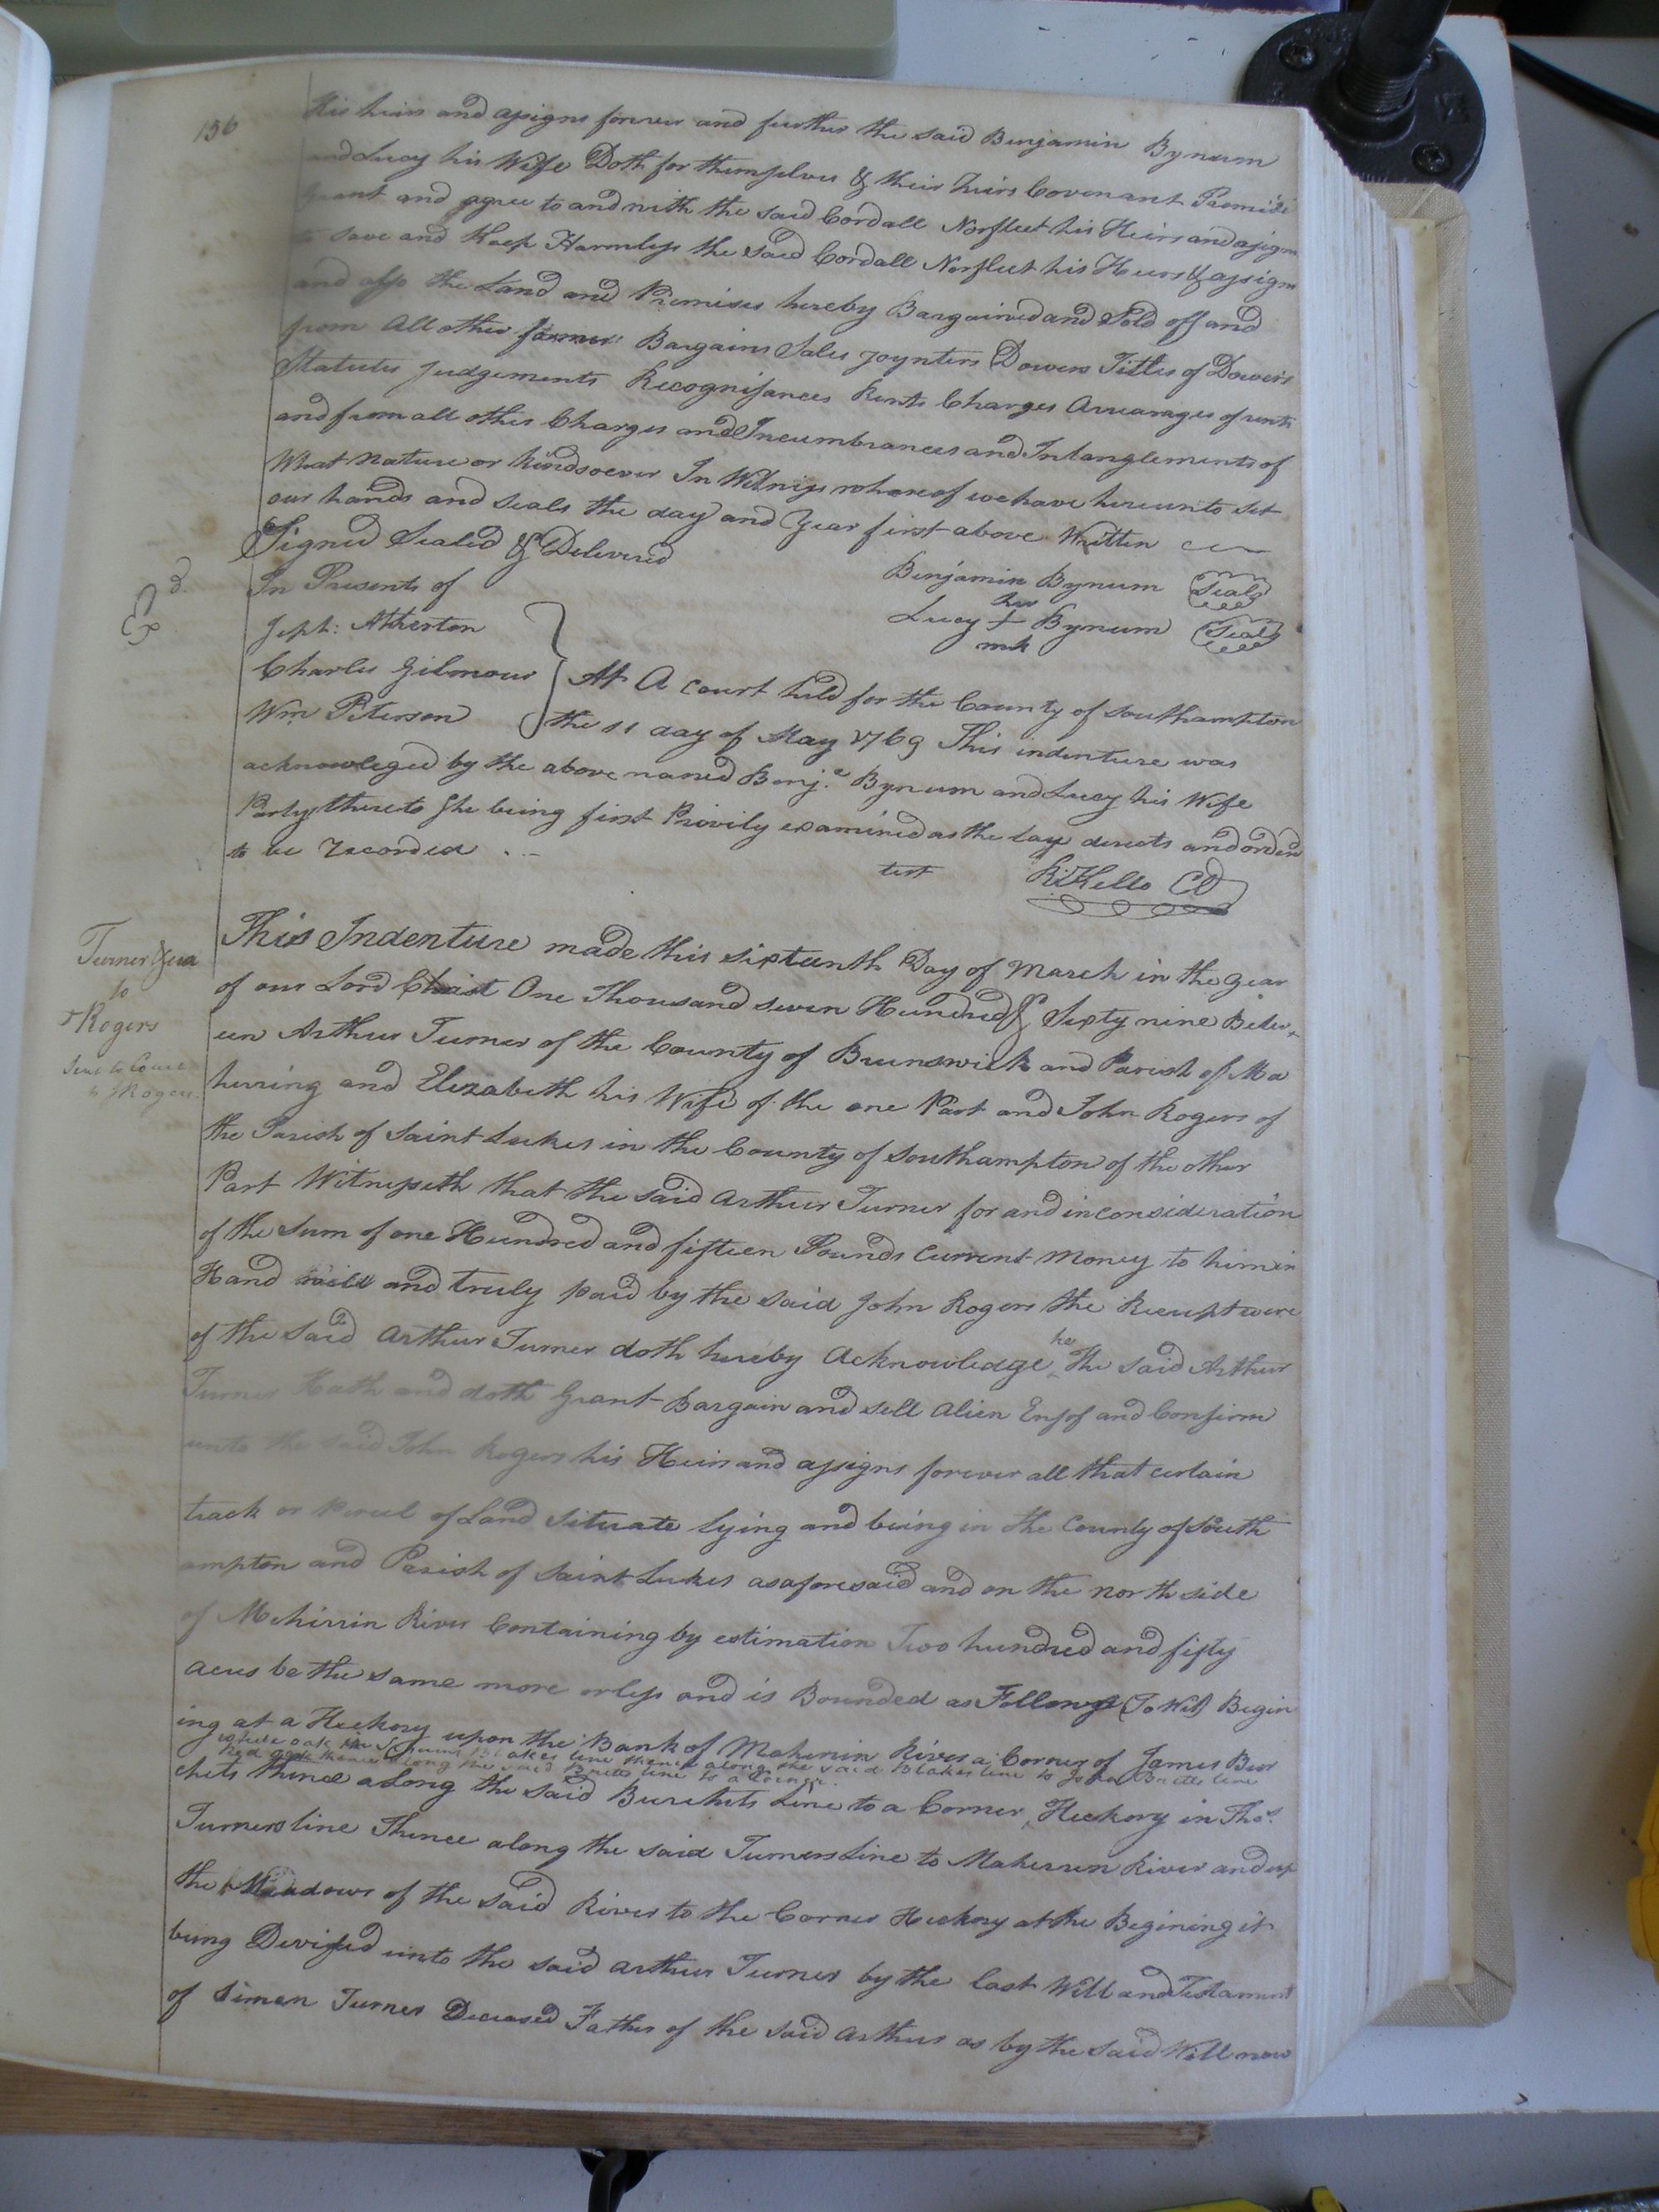 156
His heirs and assigns forever and further the said Benjamin Bynum
and Lucy his Wife Doth for themselves & their heirs Covenant Promise
Grant and agree to and with the said Cordall Norfleet his Heirs and assigns
to save and Keep Harmless the said Cordall Norfleet his Heirs & assigns
and also the Land and Premises hereby Bargained and Sold off and
from All other former Bargains Sales Joynters Dowers Tittles of Dowers
Statutes Judgements Recognisances Rents Charges Arrearages of rents
and from all other Charges and Incumbrances and Intanglements of
What nature or kindsoever In Witness whereof we have hereunto set
our hands and seals the day and Year first above Written
Signed Sealed & Delivered
In Presents of
Benjamin Bynum Seal
her
Lucy + Bynum Seal
mk
Exd.
Jeptr: Atherton
Charles Gilmour
Wm Peterson
At A Court held for the County of Southampton
the 11 day of May 1769 This indenture was
acknowleged by the above named Benja Bynum and Lucy his Wife
Party thereto She being first Privily examined as the law directs and orderd
to be recorded
test RKello CC
Turner &ux
to
Rogers
This Indenture made this sixteenth Day of March in the year
of our Lord Christ One Thousand seven Hundred & Sixty nine Betw
een Arthur Turner of the County of Brunswick and Parish of Ma
herring and Elezabeth his Wife of the one Part and John Rogers of
the Parish of Saint Lukes in the County of Southampton of the other
Part Witnesseth that the said Arthur Turner for and in consideration
of the Sum of one Hundred and fifteen Pounds Current Money to him in
Hand and truly paid by the said John Rogers the Receipt were
of the Said Arthur Turner doth hereby Acknowledge he The said Arthur
Turner Hath and doth Grant Bargain and sell Alien Enfof and Confirm
unto the said John Rogers his Heirs and assigns forever all that certain
track or Parcel of Land Situate lying and being in the County of South
ampton and Parish of Saint Lukes as aforesaid and on the north side
of Meherrin River Containing by estimation Two hundred and fifty
acres be the same more or less and is Bounded as Follows (To Wit) Begin
ing at a Heckory upon the Bank of Meherrin River a Corner of James Bur
white oak in Blakes line thence along the said Blakes line to John Britts line
thence along the said Britts line to a Corner
chets thence along the said Burchets Line to a Corner, Heckory in Thos.
Turners line Thence along the said Turners Line to Maherren River and up
the Meadows of the said River to the Corner Heckory at the Begining it
being Devised unto the said Arthur Turner by the last Will and Testament
of Simon Turner Deceased Father of the said Arthur as by the said Will now